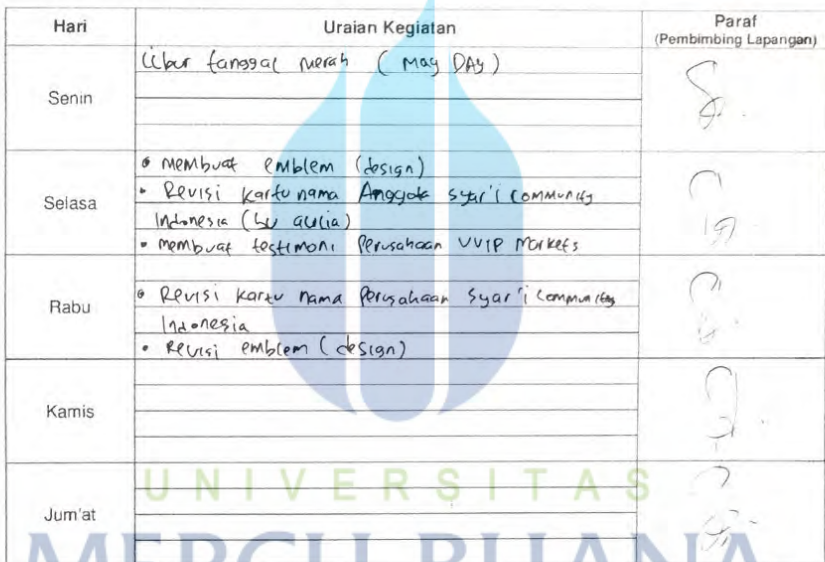 Hari Uraian Kegiatan Paraf
(Pembimbing Lapangan)
Senin
Libur tanggal merah ( May DAy )
Selasa
• membuat emblem (design)
• Revisi kartu nama Anggota syar'i community
Indonesia (bu aulia)
• membuat testimoni Perusahaan VVIP Markets
Rabu
• Revisi kartu nama Perusahaan Syar'i community
Indonesia
• Revisi emblem (design)
Kamis
Jum'at
UNIVERSITAS
MERCU BUANA